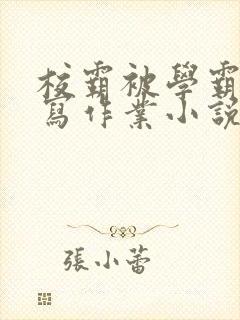 校霸被學霸
寫作業小說
張小蕾